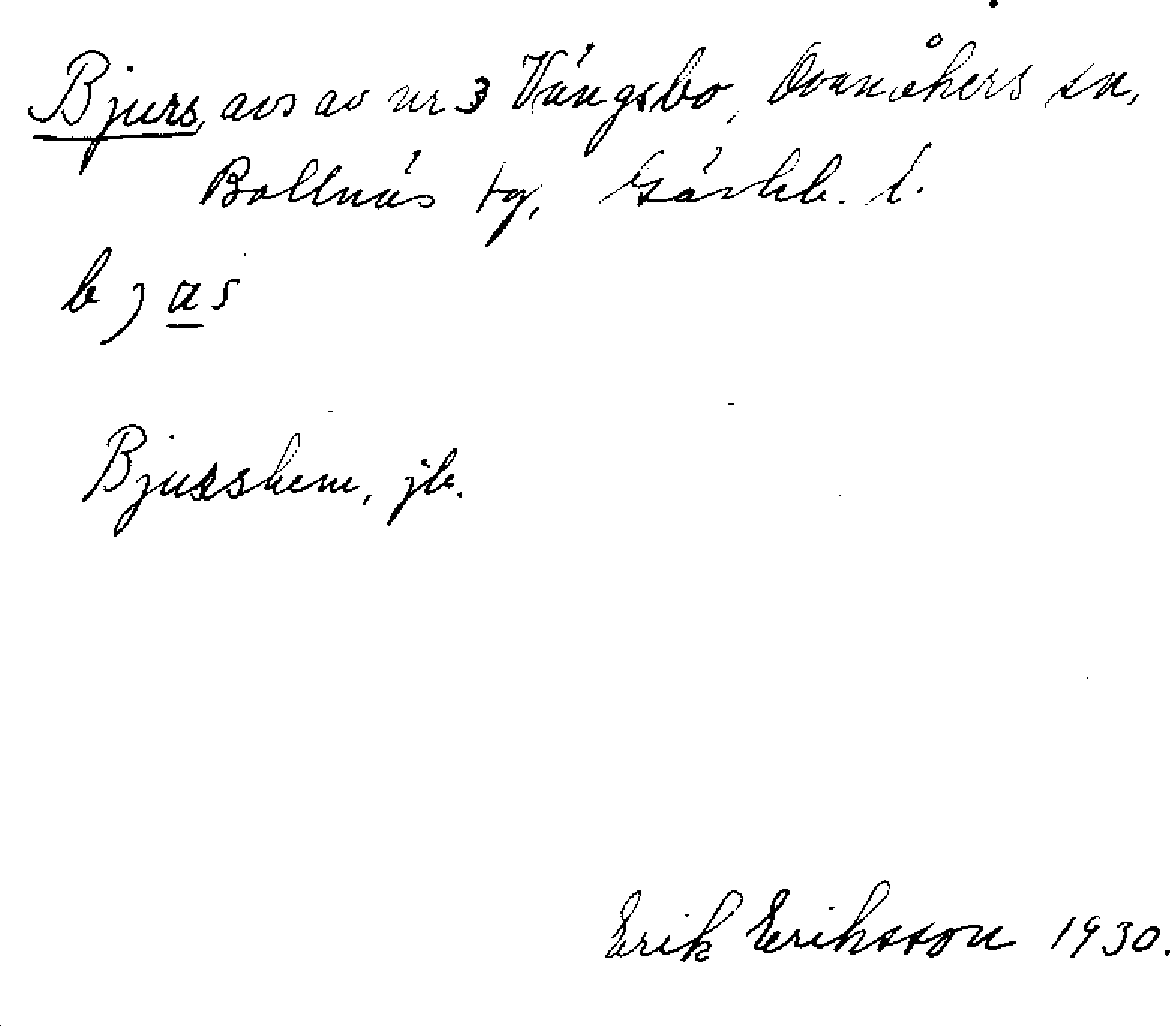 Bjurs, avs av nr 3 Vängsbo, Ovanåkers sn,
Bollnäs tg, Gävleb. l.
b j a s
Bjusshem, jb.
Erik Eriksson 1930.